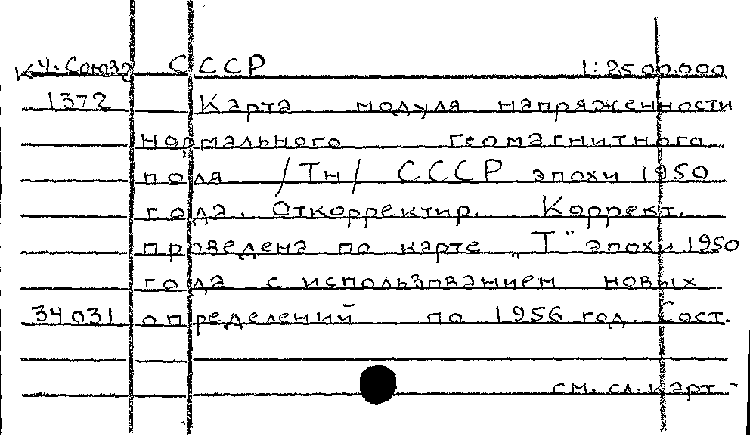 К4. Союз СССР 1:2500.000
1372 Карта модуля напряженности
нормального геомагнитного
поля /Тн/ СССР эпохи 1950
года. Откорректир. Коррект.
проведена по карте „Т" эпохи 1950
года с использованием новых
34031 определений по 1956 год. Сост.
см. сл. карт